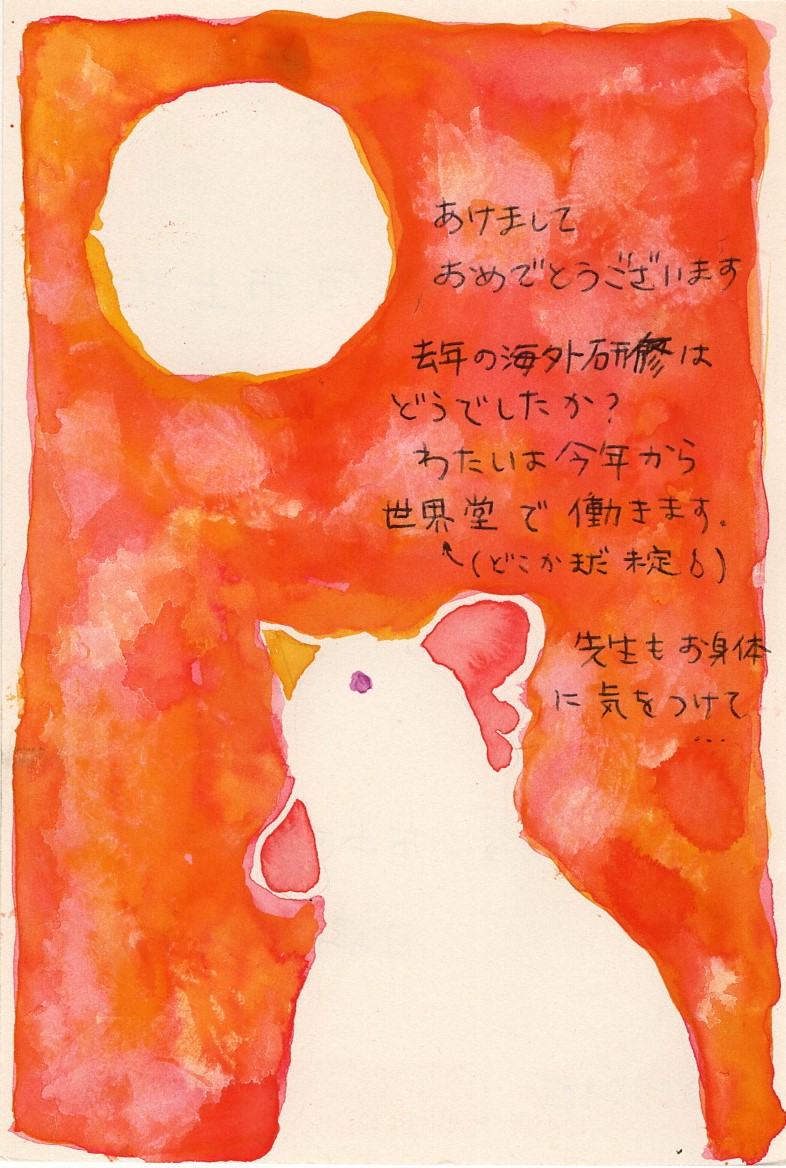 あけまして
おめでとうございます
去年の海外研修は
どうでしたか?
わたいは今年から
世界堂で働きます。
(どこかまだ未定)
先生もお身体
に気をつけて
...